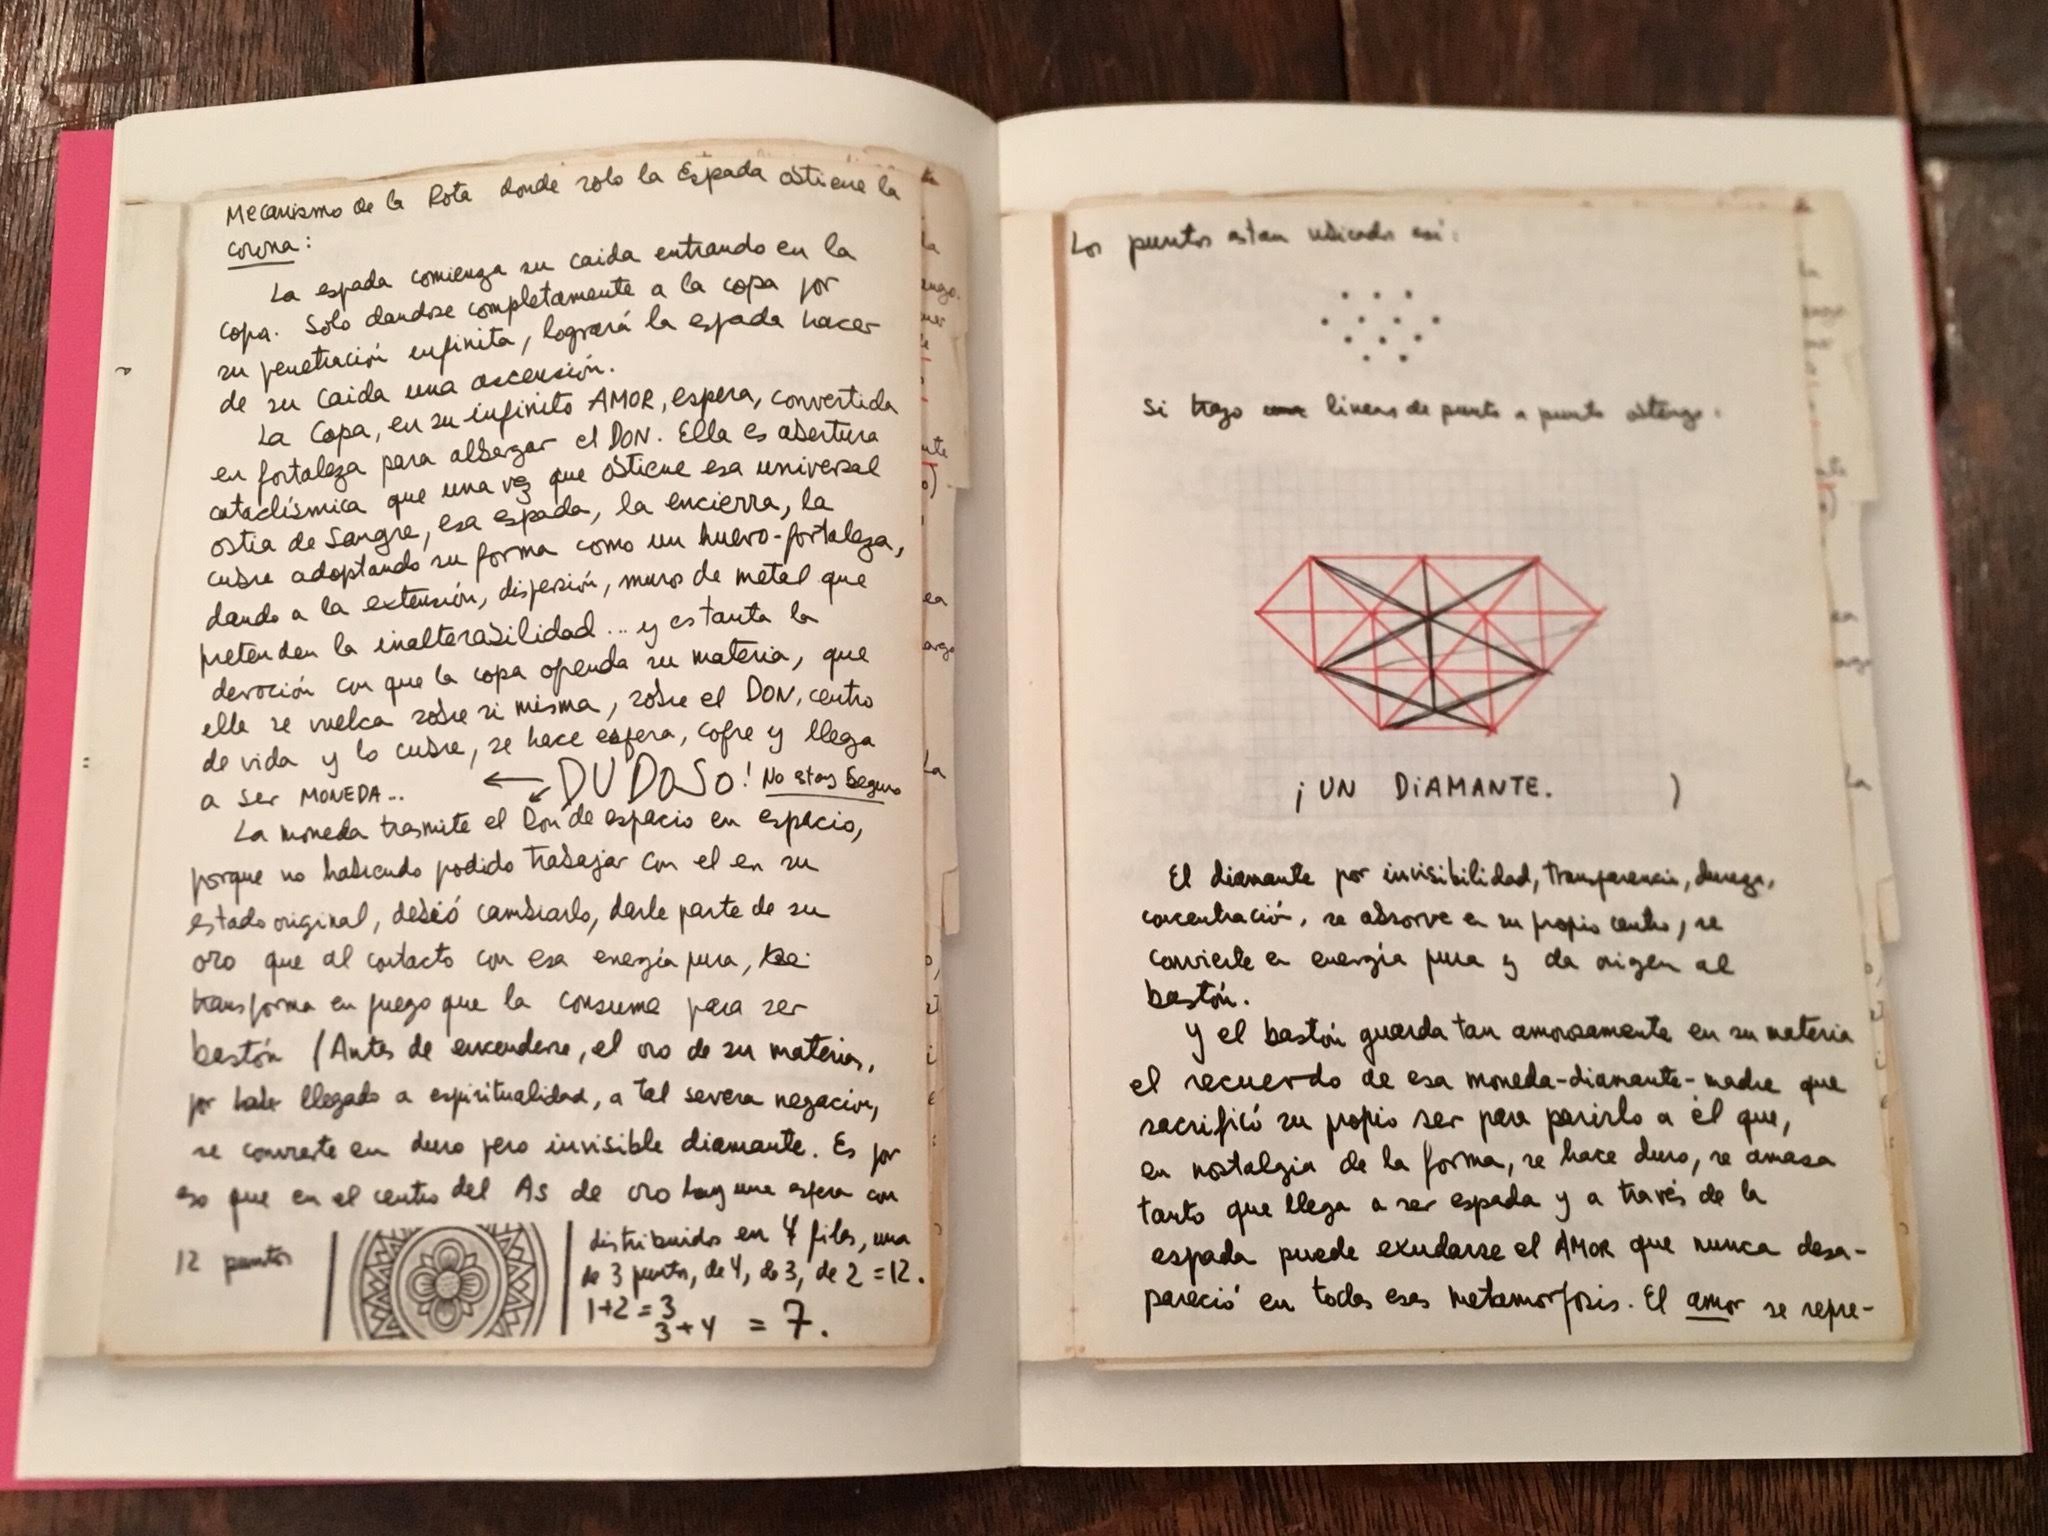 Mecanismo de la Rota donde solo la Espada obtiene la
corona:
La espada comienza su caida entrando en la
copa. Solo dandose completamente a la copa por
su penetración infinita, logrará la espada hacer
de su caida una ascensión.
La Copa, en su infinito AMOR, espera, convertida
en fortaleza para albergar el DON. Ella es abertura
cataclísmica que una vez que obtiene esa universal
ostia de sangre, esa espada, la encierra, la
cubre adoptando su forma como un huevo-fortaleza,
dando a la extensión, dispersión, muros de metal que
pretenden la inalterabilidad... y es tanta la
devoción con que la copa ofrenda su materia, que
ella se vuelca sobre si misma, sobre el DON, centro
de vida y lo cubre, se hace esfera, cofre y llega
a ser MONEDA...
DUDOSO! No estoy seguro
La moneda trasmite el Don de espacio en espacio,
porque no habiendo podido trabajar con el en su
estado original, debió cambiarlo, darle parte de su
oro que al contacto con esa energía pura, se
transforma en fuego que la consume para ser
bastón (Antes de encenderse, el oro de su materia,
por haber llegado a espiritualidad, a tal severa negación,
se convierte en duro pero invisible diamante. Es por
eso que en el centro del As de oro hay una esfera con
12 puntos
distribuidos en 4 filas, una
de 3 puntos, de 4, de 3, de 2 = 12.
1+2 = 3
3+4 = 7.
Los puntos estan ubicados asi:
Si trazo lineas de punto a punto obtengo:
¡UN DIAMANTE. )
El diamante por invisibilidad, transparencia, dureza,
concentración, se absorve en su propio centro, se
convierte en energía pura y da origen al
bastón.
Y el bastón guarda tan amorosamente en su materia
el recuerdo de esa moneda-diamante-madre que
sacrificó su propio ser para parirlo a él que,
en nostalgia de la forma, se hace duro, se amasa
tanto que llega a ser espada y a través de la
espada puede exudarse el AMOR que nunca desa-
pareció en todas esas metamorfosis. El amor se repre-